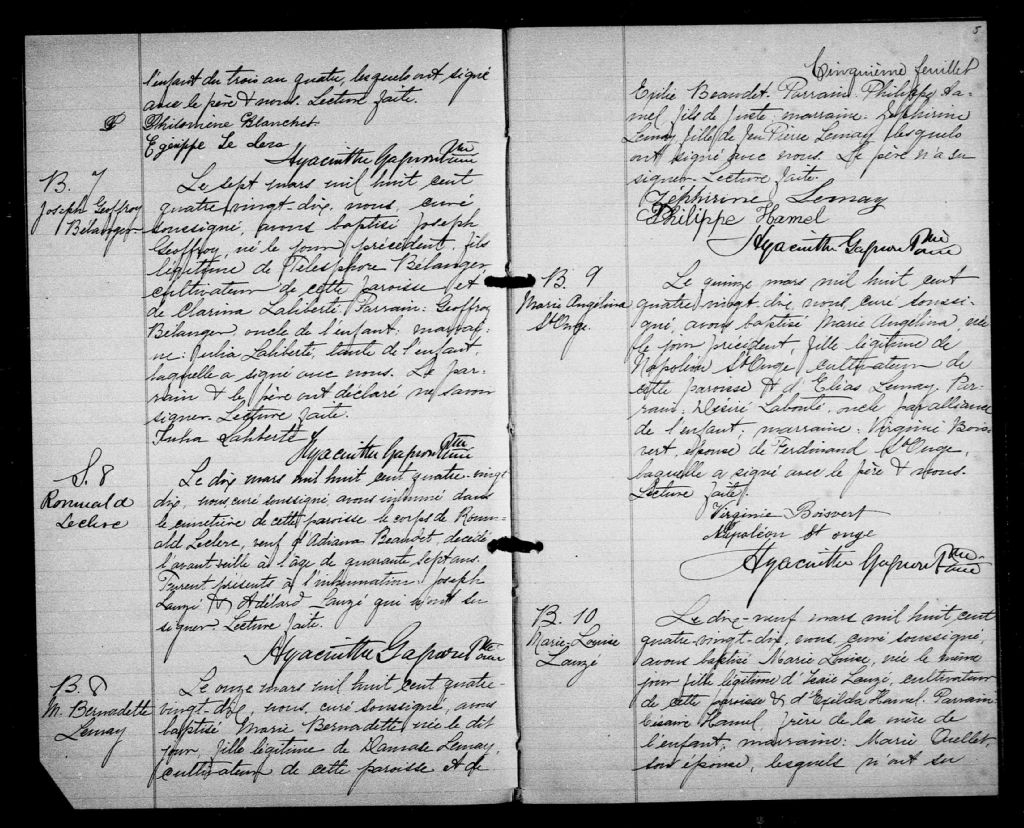 l'enfant du trois au quatre, lesquels ont signé
avec le père & nous. Lecture faite.
Philomène Blanchet
Egésippe Le
Hyacinthe Gagnon Ptre curé
B. 7
Joseph Geoffroy
Bélanger
Le sept mars mil huit cent
quatre-vingt-dix, nous, curé
soussigné, avons baptisé Joseph
Geoffroy, né le jour précédent, fils
légitime de Télesphore Bélanger,
cultivateur de cette paroisse et
de Clarina Laliberté. Parrain: Geoffroy
Bélanger, oncle de l'enfant: marrai-
ne: Julia Laliberté, tante de l'enfant,
laquelle a signé avec nous. Le par-
rain & le père ont déclaré ne savoir
signer. Lecture faite.
Julia Laliberté
Hyacinthe Gagnon Ptre curé
S. 8
Romuald
Leclerc
Le dix mars mil huit cent quatre-vingt
dix, nous curé soussigné, avons inhumé dans
le cimetière de cette paroisse le corps de Romu-
ald Leclerc, veuf d'Adriana Beaudet, décédé
l'avant veille à l'âge de quarante sept ans.
Furent présents à l'inhumation Joseph
Lauzé & Adélard Lauzé qui n'ont su
signer. Lecture faite.
Hyacinthe Gagnon Ptre curé
B. 8
M. Bernadette
Lemay
Le onze mars mil huit cent quatre-
vingt-dix, nous, curé soussigné, avons
baptisé Marie Bernadette née le dit
jour, fille légitime de Damase Lemay,
cultivateur de cette paroisse et de
5
Cinquième feuillet
Exilie Beaudet. Parrain: Philippe Ha-
mel, fils de marraine: Zéphirine
Lemay fille de Jean Pierre Lemay, lesquels
ont signé avec nous. Le père n'a su
signer. Lecture faite.
Zéphirine Lemay
Philippe Hamel
Hyacinthe Gagnon Ptre curé
B. 9
Marie Angélina
St Onge.
Le quinze mars mil huit cent
quatre vingt-dix, nous, curé soussi-
gné, avons baptisé Marie Angélina, née
le jour précédent, fille légitime de
Napoléon St Onge, cultivateur de
cette paroisse & d'Elias Lemay. Par-
rain: Désiré Labonté, oncle par alliance
de l'enfant, marraine: Virginie Bois-
vert, épouse de Ferdinand St Onge,
laquelle a signé avec le père & nous.
Lecture faite.
Virginie Boisvert
Napoléon St onge
Hyacinthe Gagnon Ptre curé
B. 10
Marie-Louise
Lauzé
Le dix-neuf mars mil huit cent
quatre-vingt-dix, nous, curé soussigné,
avons baptisé Marie Louise, née le même
jour fille légitime d'Isaïe Lauzé, cultivateur
de cette paroisse & d'Exilda Hamel. Parrain:
Césaire Hamel, frère de la mère de
l'enfant, marraine: Marie Ouellet,
son épouse, lesquels n'ont su